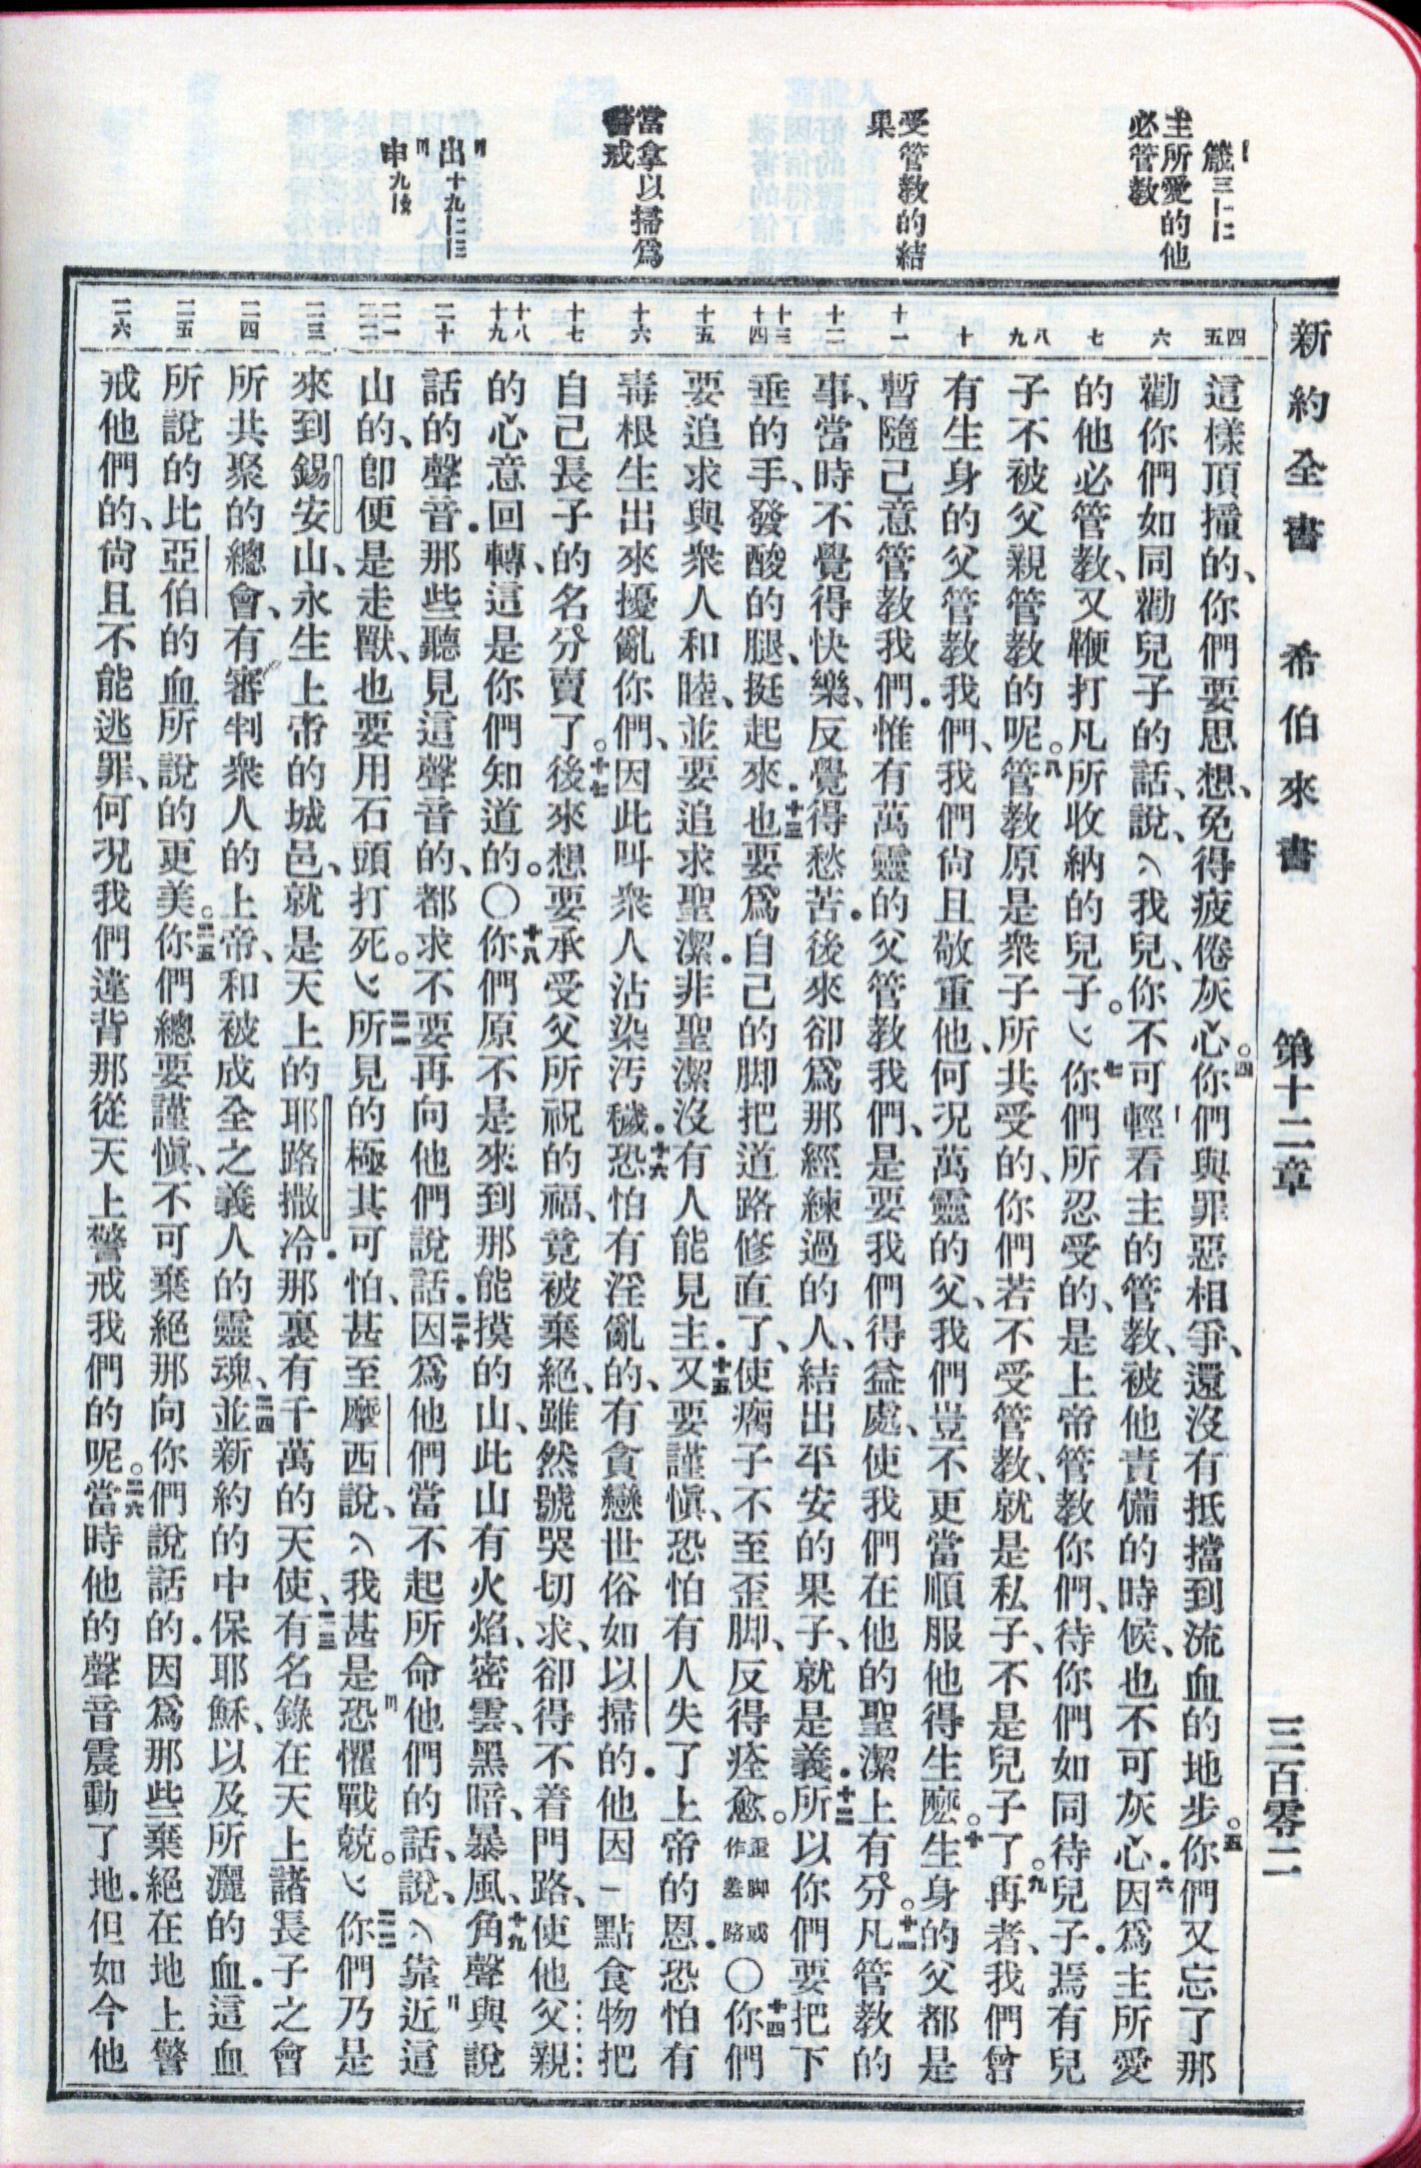 新約全書 希伯來書 第十二章 三百零二
箴三
主所愛的他
必管教
受管教的結
果
當拿以掃爲
警戒
出十九
申九
四
五
六
七
八
九
十
十一
十二
十三
十四
十五
十六
十七
十八
十九
二十
二一
二二
二三
二四
二五
二六
這樣頂撞的、你們要思想、免得疲倦灰心。四你們與罪惡相爭、還沒有抵擋到流血的地步。五你們又忘了那
勸你們如同勸兒子的話、說、我兒、你不可輕看主的管教、被他責備的時候、也不可灰心．六因爲主所愛
的他必管教、又鞭打凡所收納的兒子。七你們所忍受的、是上帝管教你們、待你們如同待兒子．焉有兒
子不被父親管教的呢。八管教原是衆子所共受的、你們若不受管教、就是私子、不是兒子了。九再者、我們曾
有生身的父管教我們、我們尙且敬重他、何况萬靈的父、我們豈不更當順服他得生麽。十生身的父都是
暫隨己意管教我們．惟有萬靈的父管教我們、是要我們得益處、使我們在他的聖潔上有分。十一凡管教的
事、當時不覺得快樂、反覺得愁苦．後來卻爲那經練過的人、結出平安的果子、就是義．十二所以你們要把下
垂的手、發酸的腿、挺起來．十三也要爲自己的脚把道路修直了、使瘸子不至歪脚、反得痊愈。歪脚或作差路〇十四你們
要追求與衆人和睦、並要追求聖潔．非聖潔沒有人能見主．十五又要謹愼、恐怕有人失了上帝的恩．恐怕有
毒根生出來擾亂你們、因此叫衆人沾染汚穢．十六恐怕有淫亂的、有貪戀世俗如以掃的．他因一點食物把
自己長子的名分賣了。十七後來想要承受父所祝的福、竟被棄絕、雖然號哭切求、卻得不着門路、使他父親
的心意回轉、這是你們知道的。〇十八你們原不是來到那能摸的山、此山有火焰、密雲、黑暗、暴風、十九角聲與說
話的聲音．那些聽見這聲音的、都求不要再向他們說話．二十因爲他們當不起所命他們的話、說、靠近這
山的、卽便是走獸、也要用石頭打死。二一所見的極其可怕、甚至摩西說、我甚是恐懼戰兢。二二你們乃是
來到錫安山、永生上帝的城邑、就是天上的耶路撒冷．那裏有千萬的天使、二三有名錄在天上諸長子之會
所共聚的總會、有審判衆人的上帝、和被成全之義人的靈魂、二四並新約的中保耶穌、以及所灑的血．這血
所說的比亞伯的血所說的更美。二五你們總要謹愼、不可棄絕那向你們說話的．因爲那些棄絕在地上警
戒他們的、尙且不能逃罪、何况我們違背那從天上警戒我們的呢。二六當時他的聲音震動了地．但如今他